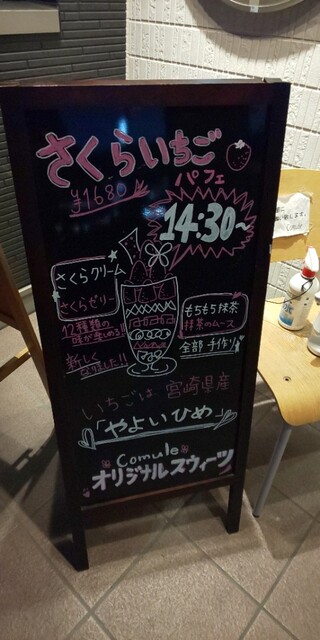 さくらいちご
パフェ
¥1680
14:30〜
さくらクリーム
さくらゼリー
12種類の
味が楽しめる!!
新しく
なりました!!
もちもち抹茶
抹茶のムース
全部 手作り
いちごは 宮崎県産
「やよいひめ」
Comule
オリジナルスウィーツ
Comule